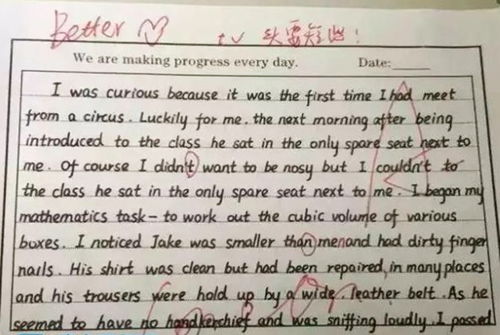 Better
tv 头要短出!
We are making progress every day. Date:
I was curious because it was the first time I had meet
from a circus. Luckily for me. the next morning after being
introduced to the class he sat in the only spare seat next to
me. Of course I didn't want to be nosy but I couldn't to
the class he sat in the only spare seat next to me. I began my
mathematics task - to work out the cubic volume of various
boxes. I noticed Jake was smaller than men and had dirty finger
nails. His shirt was clean but had been repaired, in many places
and his trousers were hold up by a wide. leather belt. As he
seemed to have no handkerchief and was sniffing loudly. I passed